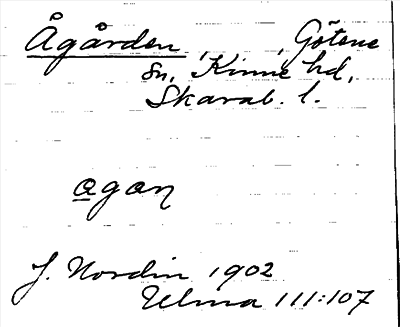 Ågården, Götene
sn, Kinne hd,
Skarab. l.
agaɳ
J. Nordin 1902
Ulma 111:107